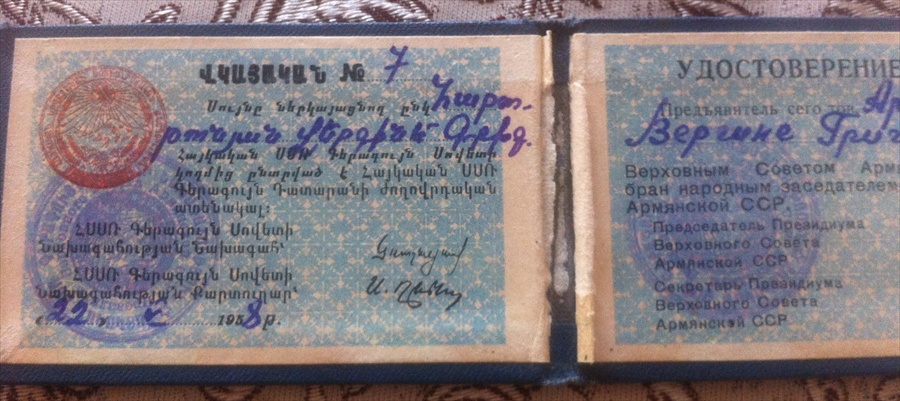 ՎԿԱՅԱԿԱՆ № 7
Սույնը ներկայացնող ընկ.
Հայկական ՍՍՌ Գերագույն Սովետի
կողմից ընտրված է Հայկական ՍՍՌ
Գերագույն Դատարանի ժողովրդական
ատենակալ:
ՀՍՍՌ Գերագույն Սովետի
Նախագահության Նախագահ՝
ՀՍՍՌ Գերագույն Սովետի
Նախագահության Քարտուղար՝
« 22 » 1958 թ.
УДОСТОВЕРЕНИЕ
Предъявитель сего тов. Ар
Вергине Григ
Верховным Советом Арм
бран народным заседателем
Армянской ССР.
Председатель Президиума
Верховного Совета
Армянской ССР
Секретарь Президиума
Верховного Совета
Армянской ССР